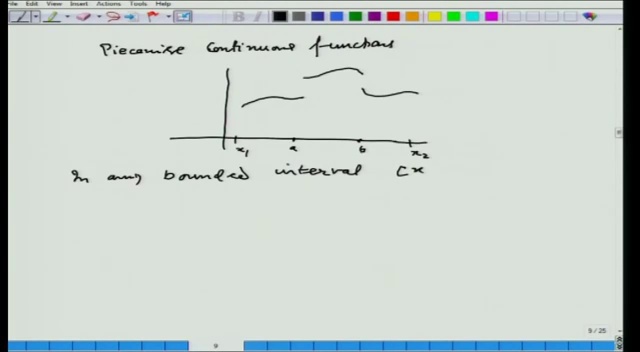 File Edit View Insert Actions Tools Help
Piecewise Continuous functions
x1 a b x2
In any bounded interval [x
9/25
9